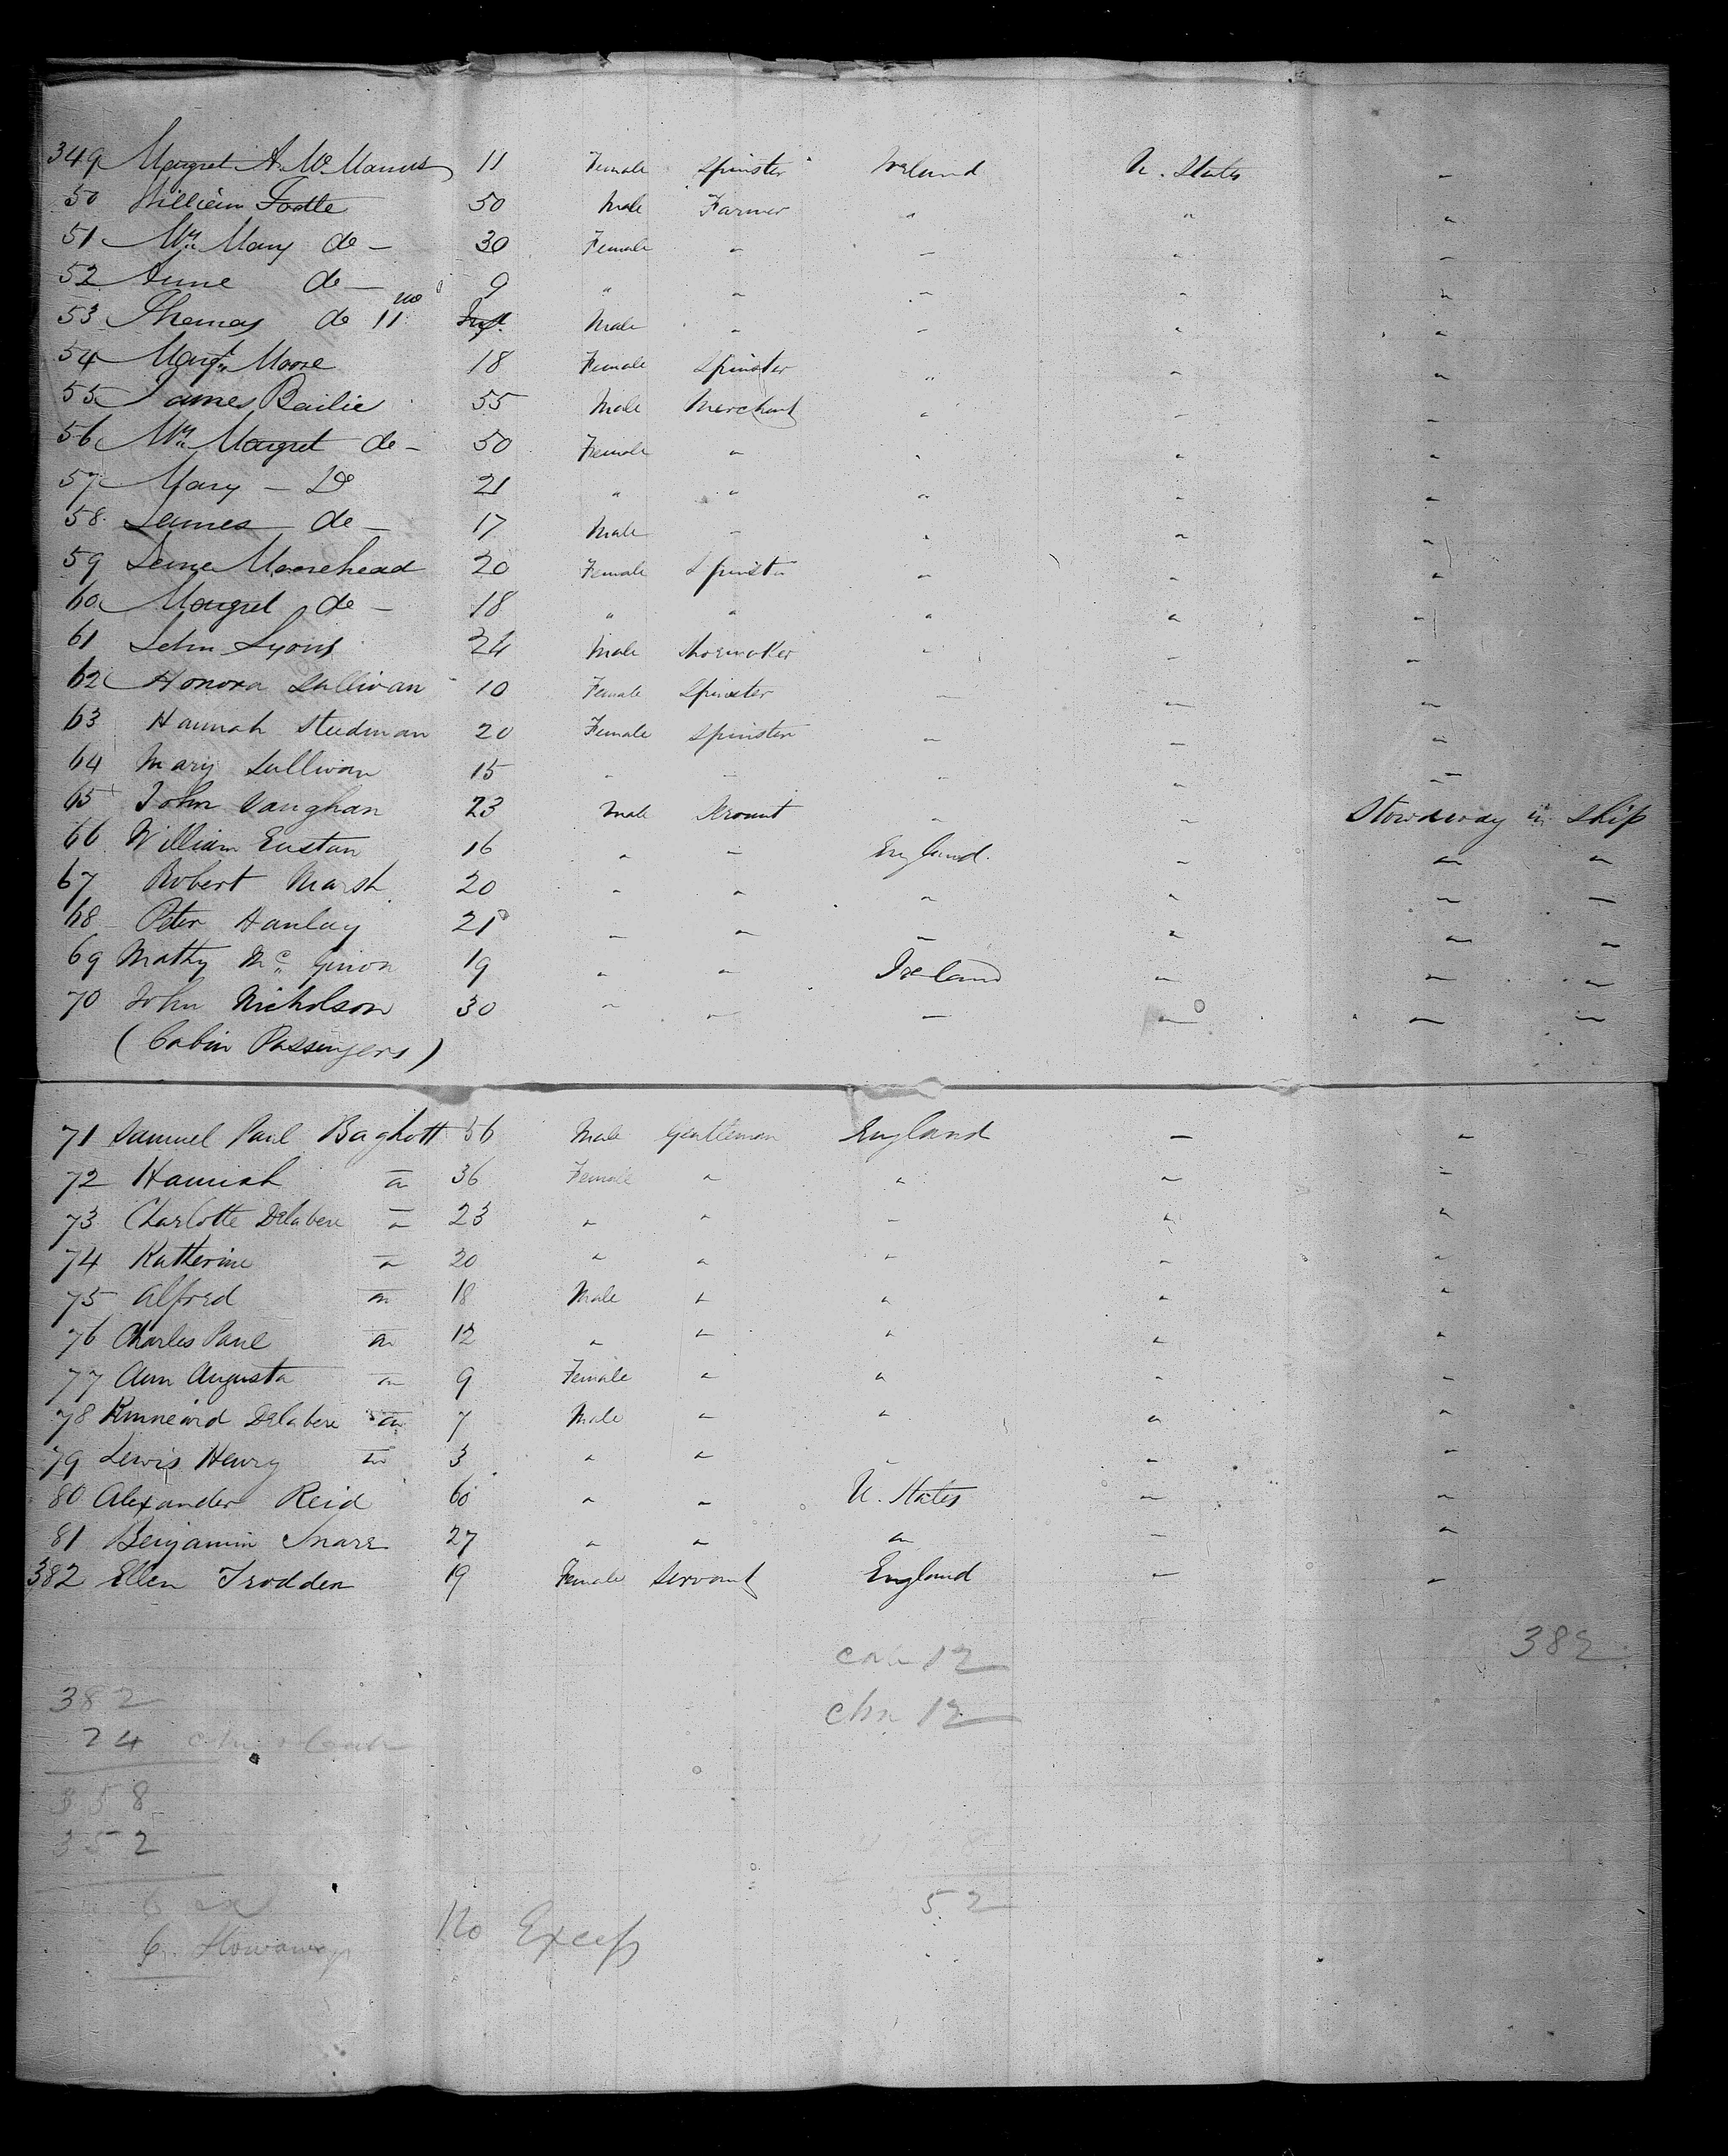 349 Margret A. Mc Manus 11 Female Spinster Ireland U. States "
50 William Foote 50 Male Farmer " " "
51 Mrs Mary do - 30 Female " - " -
52 Anne do - 9 " " - " "
53 Thomas do 11 mo Inft Male " - " "
54 Margt Moore 18 Female Spinster " " "
55 James Bailie 55 Male Merchant " - -
56 Mrs Margret do - 50 Female " " " "
57 Mary - Do 21 " " " " "
58 James do - 17 Male - " " "
59 Jane Moorehead 20 Female Spinster " " "
60 Margret do - 18 " " " " "
61 John Lyons 24 Male Shoemaker " - -
62 Honora Sullivan 10 Female Spinster - - -
63 Hannah Steedman 20 Female Spinster - - "
64 Mary Sullivan 15 " - " " "
65 John Vaughan 23 Male Servant " - Stowaway in Ship
66 William Eustan 16 " - England - " "
67 Robert Marsh 20 " " " " - -
68 Peter Hanlay 21 - " - " " "
69 Mathy Mc Ginon 19 " " Ireland " " "
70 John Nicholson 30 " " - - - -
(Cabin Passengers)
71 Samuel Paul Baghott 56 Male Gentleman England - "
72 Hannah " 36 Female " " " "
73 Charlotte Delabere " 23 " " - " "
74 Katherine " 20 " " " " "
75 Alfred " 18 Male " " " "
76 Charles Paul " 12 " " " " "
77 Ann Augusta " 9 Female " " " "
78 Kinneard Delabere " 7 Male " " " "
79 Lewis Henry " 3 " " " " "
80 Alexander Reid 60 " " U. States - "
81 Benjamin Snare 27 " " " - "
382 Ellen Trodden 19 Female Servant England - -
382
12
chn 12
382
24
358
352
52
6
6 Stowaways
No Excess